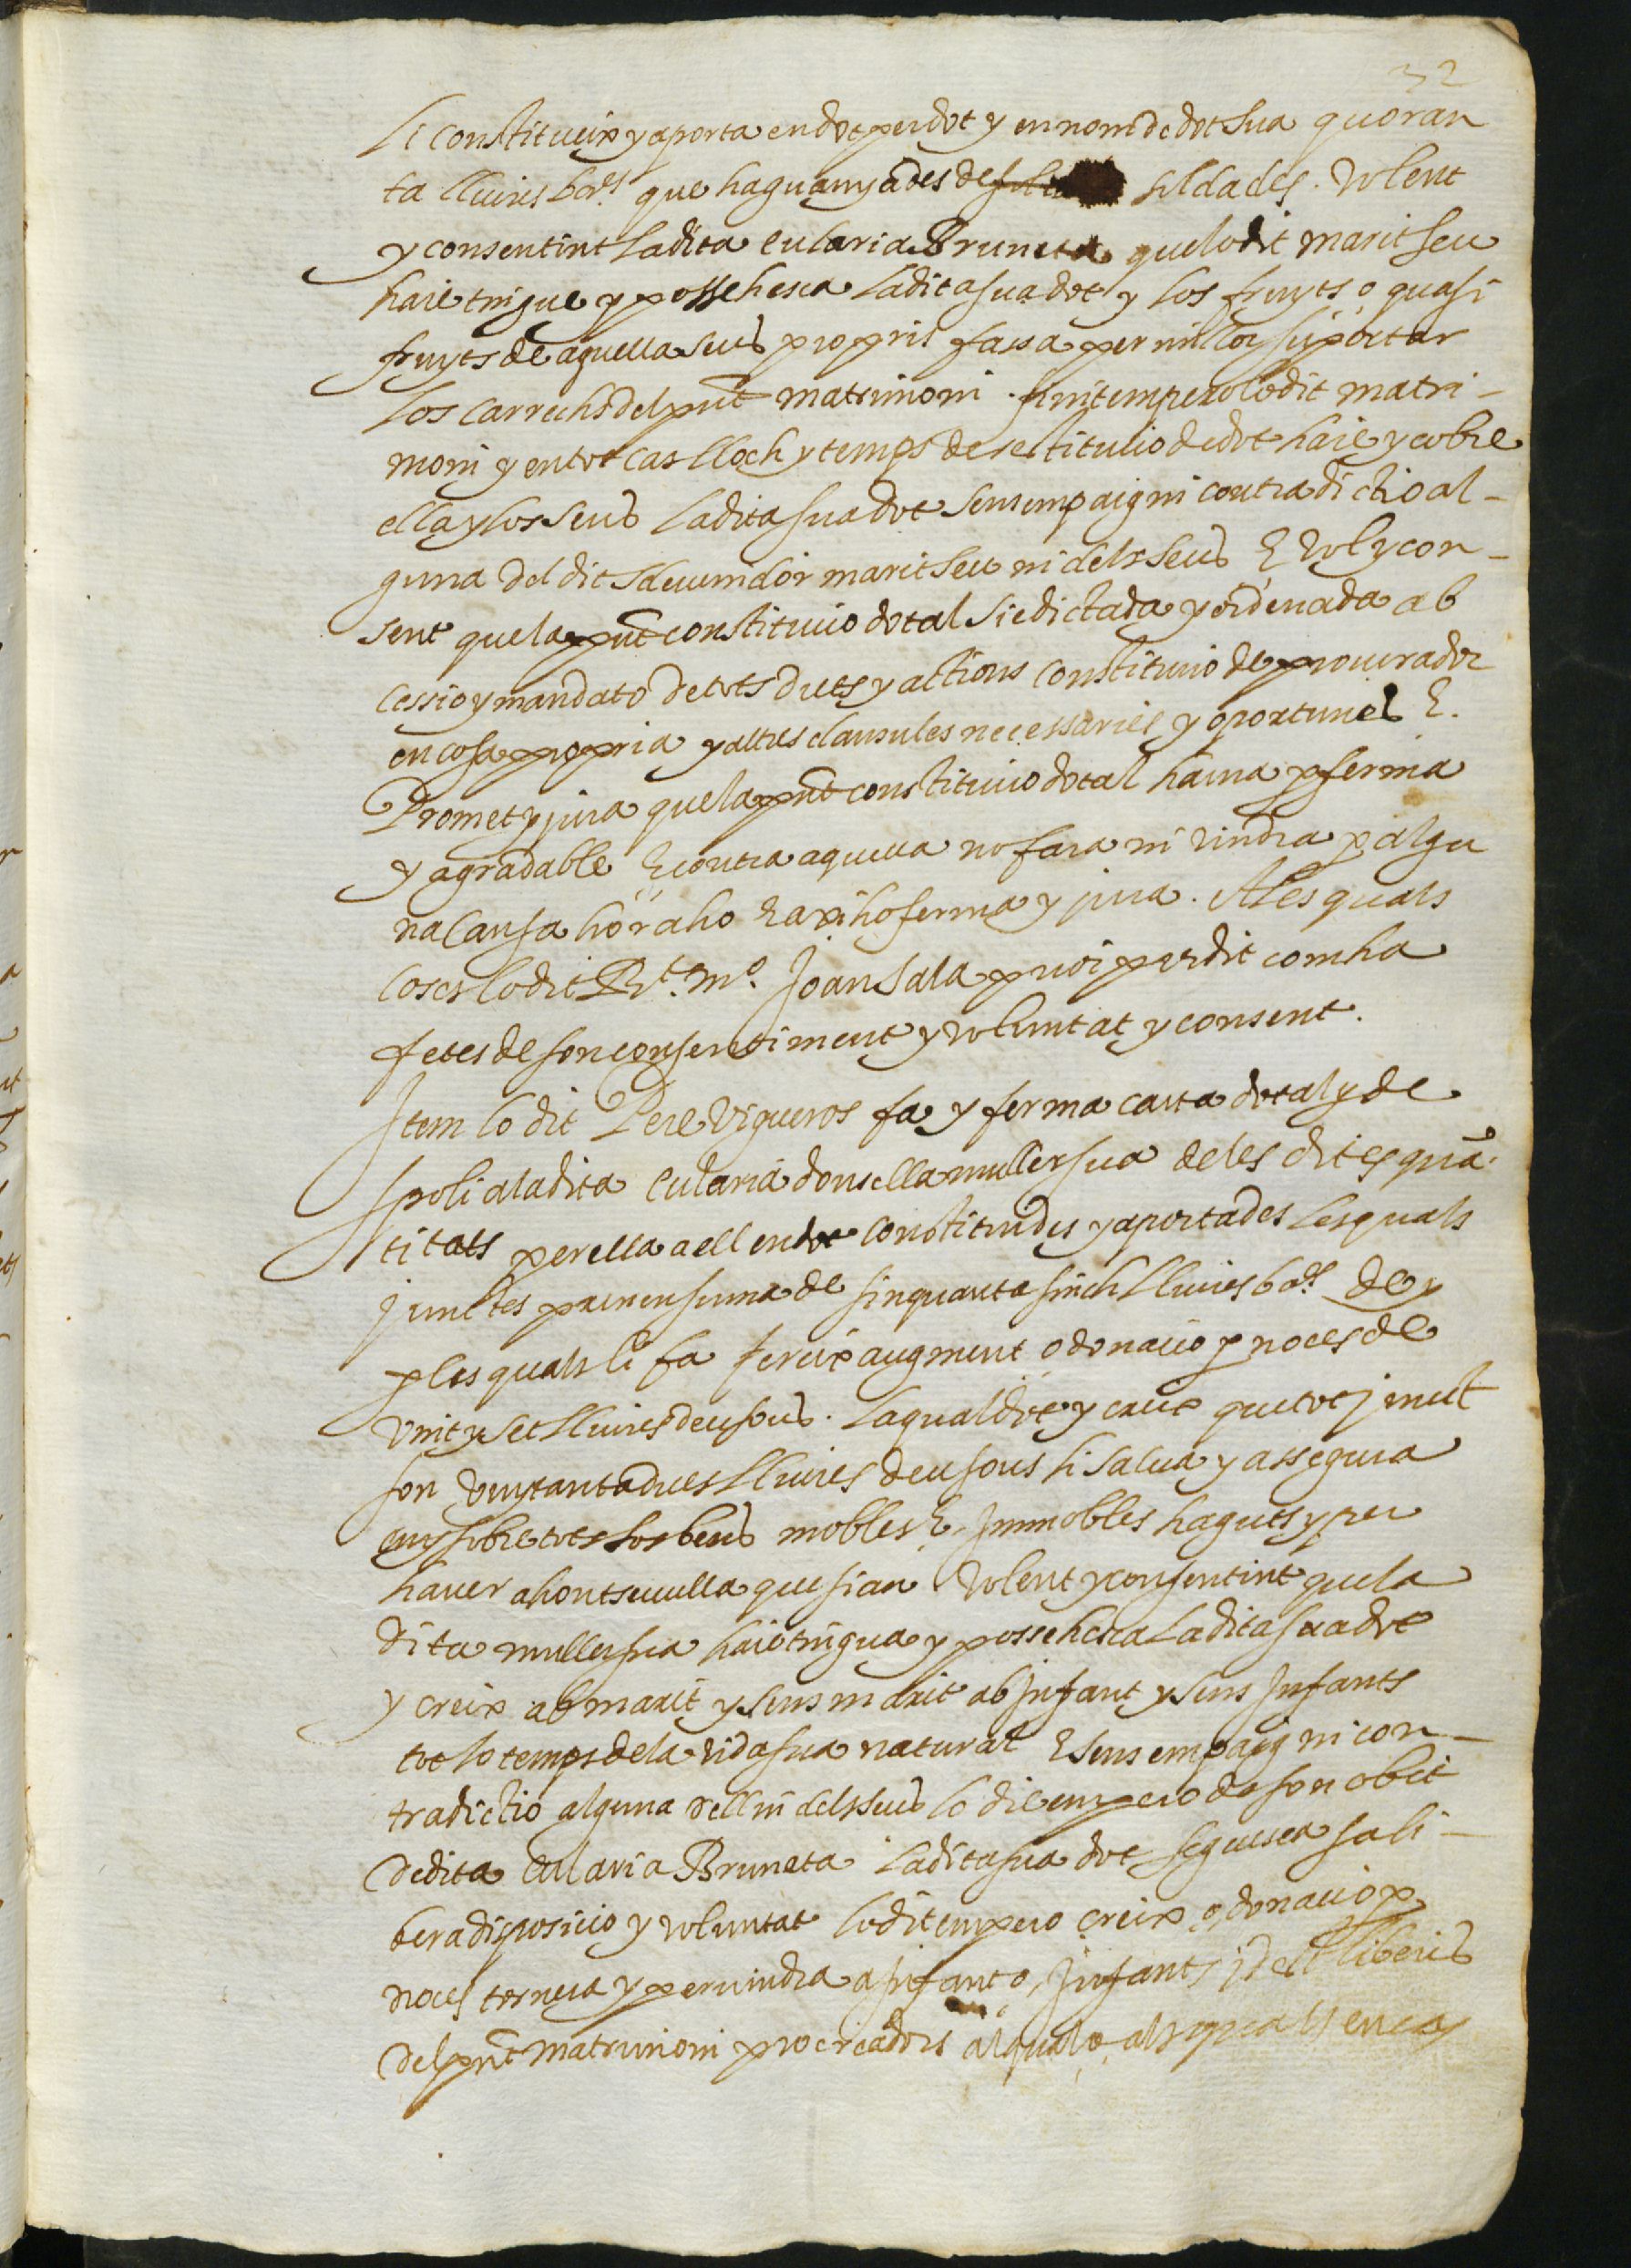 32
li constitueix y aporta en dot per dot y en nom de dot sua quoran
ta lliures bar.s que ha guanyades de soldades. Volent
y consentint la dita Eularia Bruneta que lo dit marit seu
haie tingue y possehesca la dita sua dot y los fruyts o quasi
fruyts de aquella seus propris fassa per millor suportar
los carrechs del pnt matrimoni. finit empero lo dit matri-
moni y en tot cas lloch y temps de restitucio de dot haie y cobre
ella y los seus la dita sua dot sens empaig ni contradictio al-
guna del dit sdevenidor marit seu ni dels seus E vol y con-
sent que la pnt constitucio dotal sie dictada y ordenada ab
cessio y mandato de tots drets y actions constitucio de procurador
en cosa propria y altres clausules necessaries y oportunes E.
Promet y jura que la pnt constitucio dotal haura p ferma
y agradable E contra aquella no fara ni vindra p algu
na causa ho raho E axi ho ferma y jura. A les quals
coses lo dit Rt. mo. Joan Sala prior per dit com ha
fetes de son consentiment y voluntat y consent.
Item lo dit Pere Vigueros fa y ferma carta dotal y de
spoli a la dita Eularia donsella muller sua de les dites quã-
titats per ella a ell en dot constituides y aportades les quals
junctes prenen suma de sinquanta sinch lliures bar.s de y
p les quals li fa y creix augment o donacio p noces de
vint y set lliures deu sous. la qual dot y creix que tot junct
son vuytanta dues lliures deu sous li salva y assegura
en y sobre tots los bens mobles E immobles haguts y per
haver ahont se vulla que sian Volent y consentint que la
dita muller sua haie tingua y possehesca la dita sua dot
y creix ab marit y sens marit ab infant y sens infants
tot lo temps de la vida sua natural E sens empaig ni con-
tradictio alguna dell ni dels seus lo die empero de son obit
de dita Eularia Bruneta la dita sua dot seguesca sa lli-
bera disposicio y voluntat lo dit empero creix o donacio p
noces tornera y pervindra a infant o infants
del pnt matrimoni procreadors al qual o als quals en cas